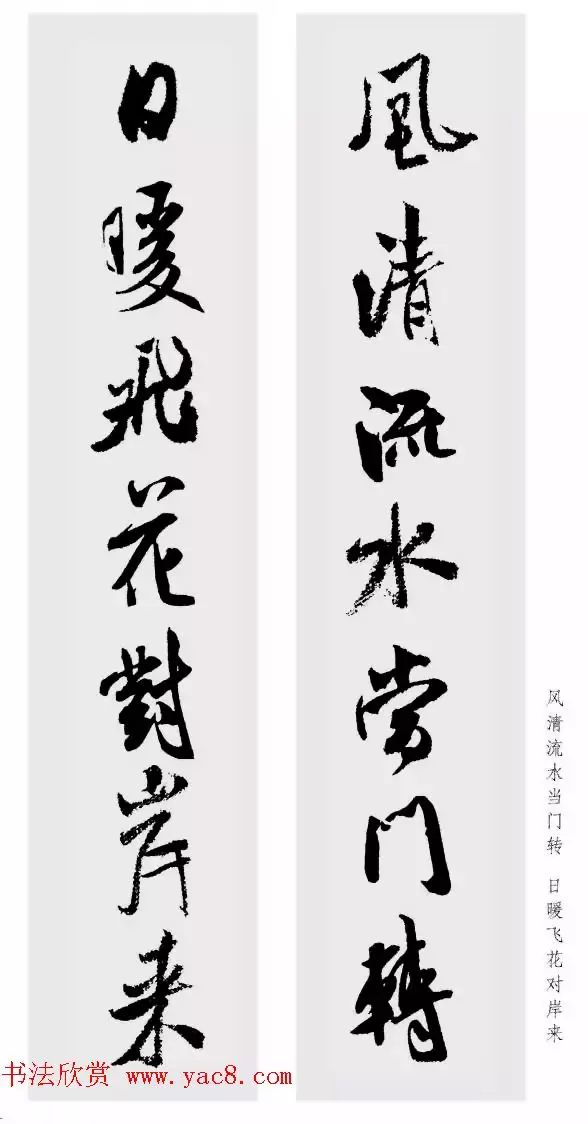 風清流水當門轉
日暖飛花對岸来
风清流水当门转 日暖飞花对岸来
书法欣赏 www.yac8.com